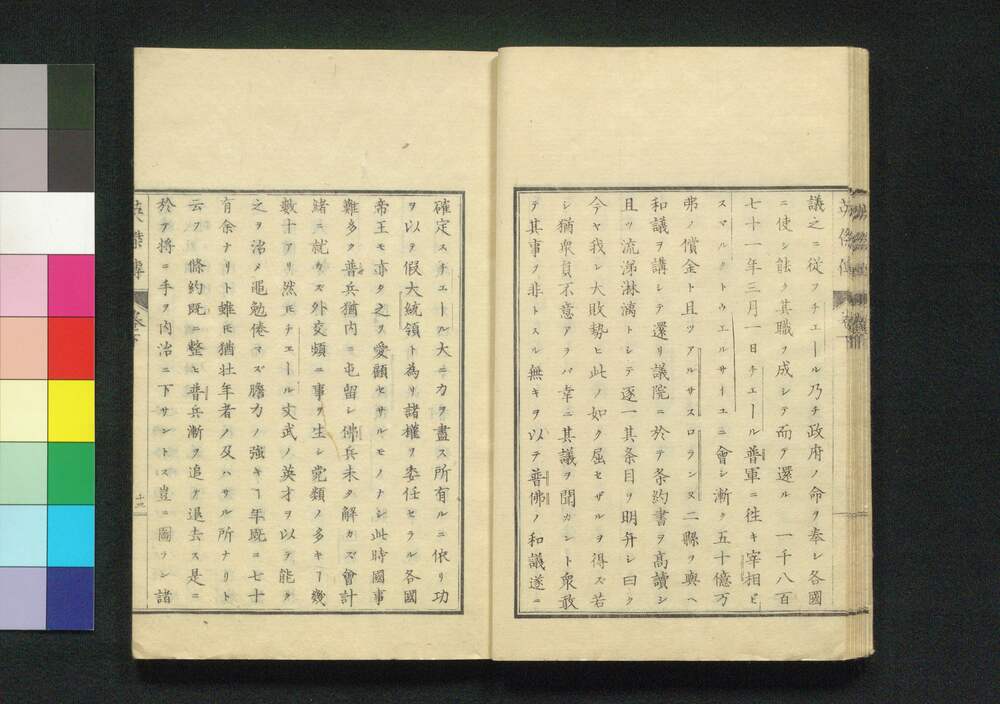 議之ニ從フチエール乃チ政府ノ命ヲ奉シ各國
ニ使シ能ク其職ヲ成シテ而テ還ル　一千八百
七十一年三月一日チエール普軍ニ往キ宰相ビ
スマルクトウエルサーエニ會シ漸ク五十億万
弗ノ償金ト且ツアルサスロランヌ二縣ヲ與ヘ
和議ヲ講シテ還リ議院ニ於テ条約書ヲ高讀シ
且ツ流涕淋漓トシテ逐一其条目ヲ明弁シ曰ク
今ヤ我レ大敗勢ヒ此ノ如ク屈セザルヲ得ズ若
シ猶衆員不意アラバ幸ニ其議ヲ聞カント衆敢
テ其事ヲ非トスル無キヲ以テ普佛ノ和議遂ニ
確定スチエール大ニ力ヲ盡ス所有ルニ依リ功
ヲ以テ假大統領ト為リ諸權ヲ委任セラル各國
帝王モ亦タ之ヲ愛顧セサルモノナシ此時國事
難多ク普兵猶内ニ屯留シ佛兵未タ解カズ會計
緒ニ就カズ外交頻ニ事ヲ生シ党類ノ多キヿ幾
數十アリ然ㇾ𪜈チエール文武ノ英才ヲ以テ能ク
之ヲ治メ黽勉倦マズ膽力ノ強キヿ年既ニ七十
有余ナリト雖𪜈猶壮年者ノ及ハサル所ナリト
云フ　條約既ニ整ヒ普兵漸ヲ追テ退去ス是ニ
於テ将ニ手ヲ内治ニ下サントス豈ニ圖ランヤ諸
英傑傳
卷下
十四